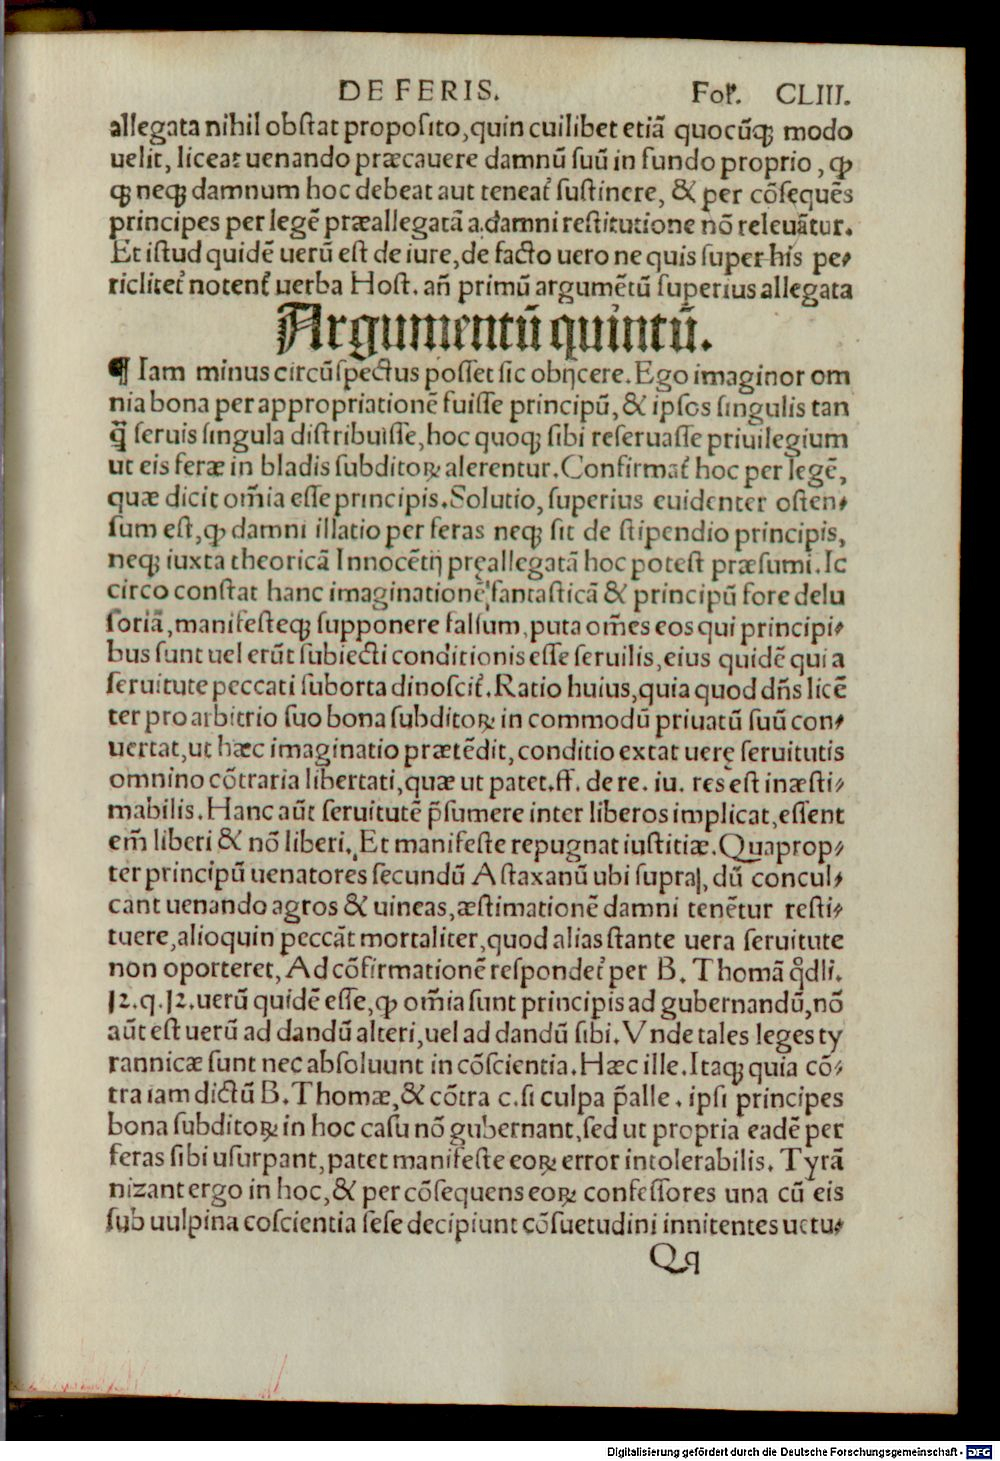 DE FERIS. Fol. CLIII.
allegata nihil obſtat propoſito, quin cuilibet etiā quocūqꝫ modo
uelit, liceat uenando præcauere damnū ſuū in fundo proprio, ꝙ
qꝫ neqꝫ damnum hoc debeat aut teneat᷑ ſuſtinere, & per cōſequēs
principes per legē præallegatā a damni reſtitutione nō releuātur.
Et iſtud quidē uerū eſt de iure, de facto uero ne quis ſuper his pe⸗
riclitet᷑ notent᷑ uerba Hoſt. añ primū argumētū ſuperius allegata
Argumentū quintū.
¶ Iam minus circūſpectus poſſet ſic obijcere. Ego imaginor om
nia bona per appropriationē fuiſſe principū, & ipſos ſingulis tan
q̄ ſeruis ſingula diſtribuiſſe, hoc quoqꝫ ſibi reſeruaſſe priuilegium
ut eis feræ in bladis ſubditoꝝ alerentur. Confirmat᷑ hoc per legē,
quæ dicit om̄ia eſſe principis. Solutio, ſuperius euidenter oſten⸗
ſum eſt, ꝙ damni illatio per feras neqꝫ ſit de ſtipendio principis,
neqꝫ iuxta theoricā Innocētij pręallegatā hoc poteſt præſumi. Ic
circo conſtat hanc imaginationē fantaſticā & principū fore delu
ſoriā, manifeſteqꝫ ſupponere falſum, puta om̄es eos qui principi⸗
bus ſunt uel erūt ſubiecti conditionis eſſe ſeruilis, eius quidē qui a
ſeruitute peccati ſuborta dinoſcit᷑. Ratio huius, quia quod dñs licē
ter pro arbitrio ſuo bona ſubditoꝝ in commodū priuatū ſuū con⸗
uertat, ut hæc imaginatio prætēdit, conditio extat uerę ſeruitutis
omnino cōtraria libertati, quæ ut patet. ff. de re. iu. res eſt inæſti⸗
mabilis. Hanc aūt ſeruitutē p̄ſumere inter liberos implicat, eſſent
em̄ liberi & nō liberi. Et manifeſte repugnat iuſtitiæ. Quaprop⸗
ter principū uenatores ſecundū Aſtaxanū ubi ſupra, dū concul⸗
cant uenando agros & uineas, æſtimationē damni tenētur reſti⸗
tuere, alioquin peccāt mortaliter, quod alias ſtante uera ſeruitute
non oporteret, Ad cōfirmationē reſpondet᷑ per B. Thomā q̄dli.
12. q. 12. uerū quidē eſſe, ꝙ om̄ia ſunt principis ad gubernandū, nō
aūt eſt uerū ad dandū alteri, uel ad dandū ſibi. Vnde tales leges ty
rannicæ ſunt nec abſoluunt in cōſcientia. Hæc ille. Itaqꝫ quia cō⸗
tra iam dictū B. Thomæ, & cōtra c. ſi culpa p̄alle. ipſi principes
bona ſubditoꝝ in hoc caſu nō gubernant, ſed ut propria eadē per
feras ſibi uſurpant, patet manifeſte eoꝝ error intolerabilis. Tyrā
nizant ergo in hoc, & per cōſequens eoꝝ confeſſores una cū eis
ſub uulpina coſcientia ſeſe decipiunt cōſuetudini innitentes uetu⸗
Qq
Digitalisierung gefördert durch die Deutsche Forschungsgemeinschaft - DFG